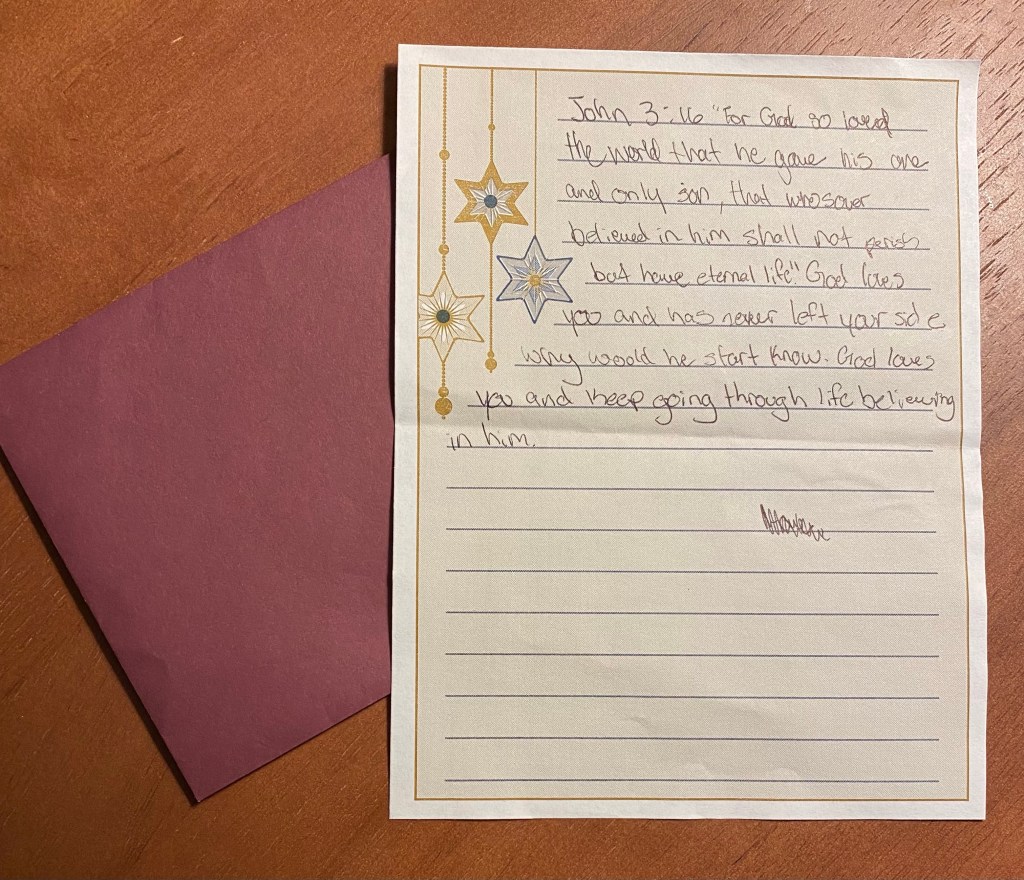 John 3:16 "For God so loved
the world that he gave his one
and only son, that whosover
believed in him shall not perish
but have eternal life". God loves
you and has never left your side
why would he start know. God loves
you and keep going through life believing
in him.